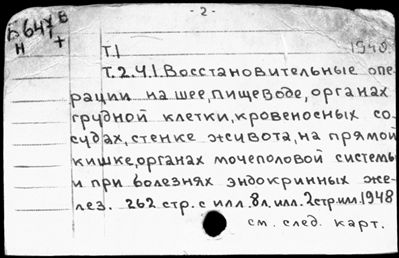 - 2 -
Б647 в
н +
Т.1 1949.
Т.2.Ч.1. Восстановительные опе-
рации на шее, пищеводе, органах
грудной клетки, кровеносных со-
судах, стенке живота, на прямой
кишке, органах мочеполовой системы
и при болезнях эндокринных же-
лез. 262 стр. с илл. 8 л. илл. 2 стр. илл. 1948
см. след. карт.